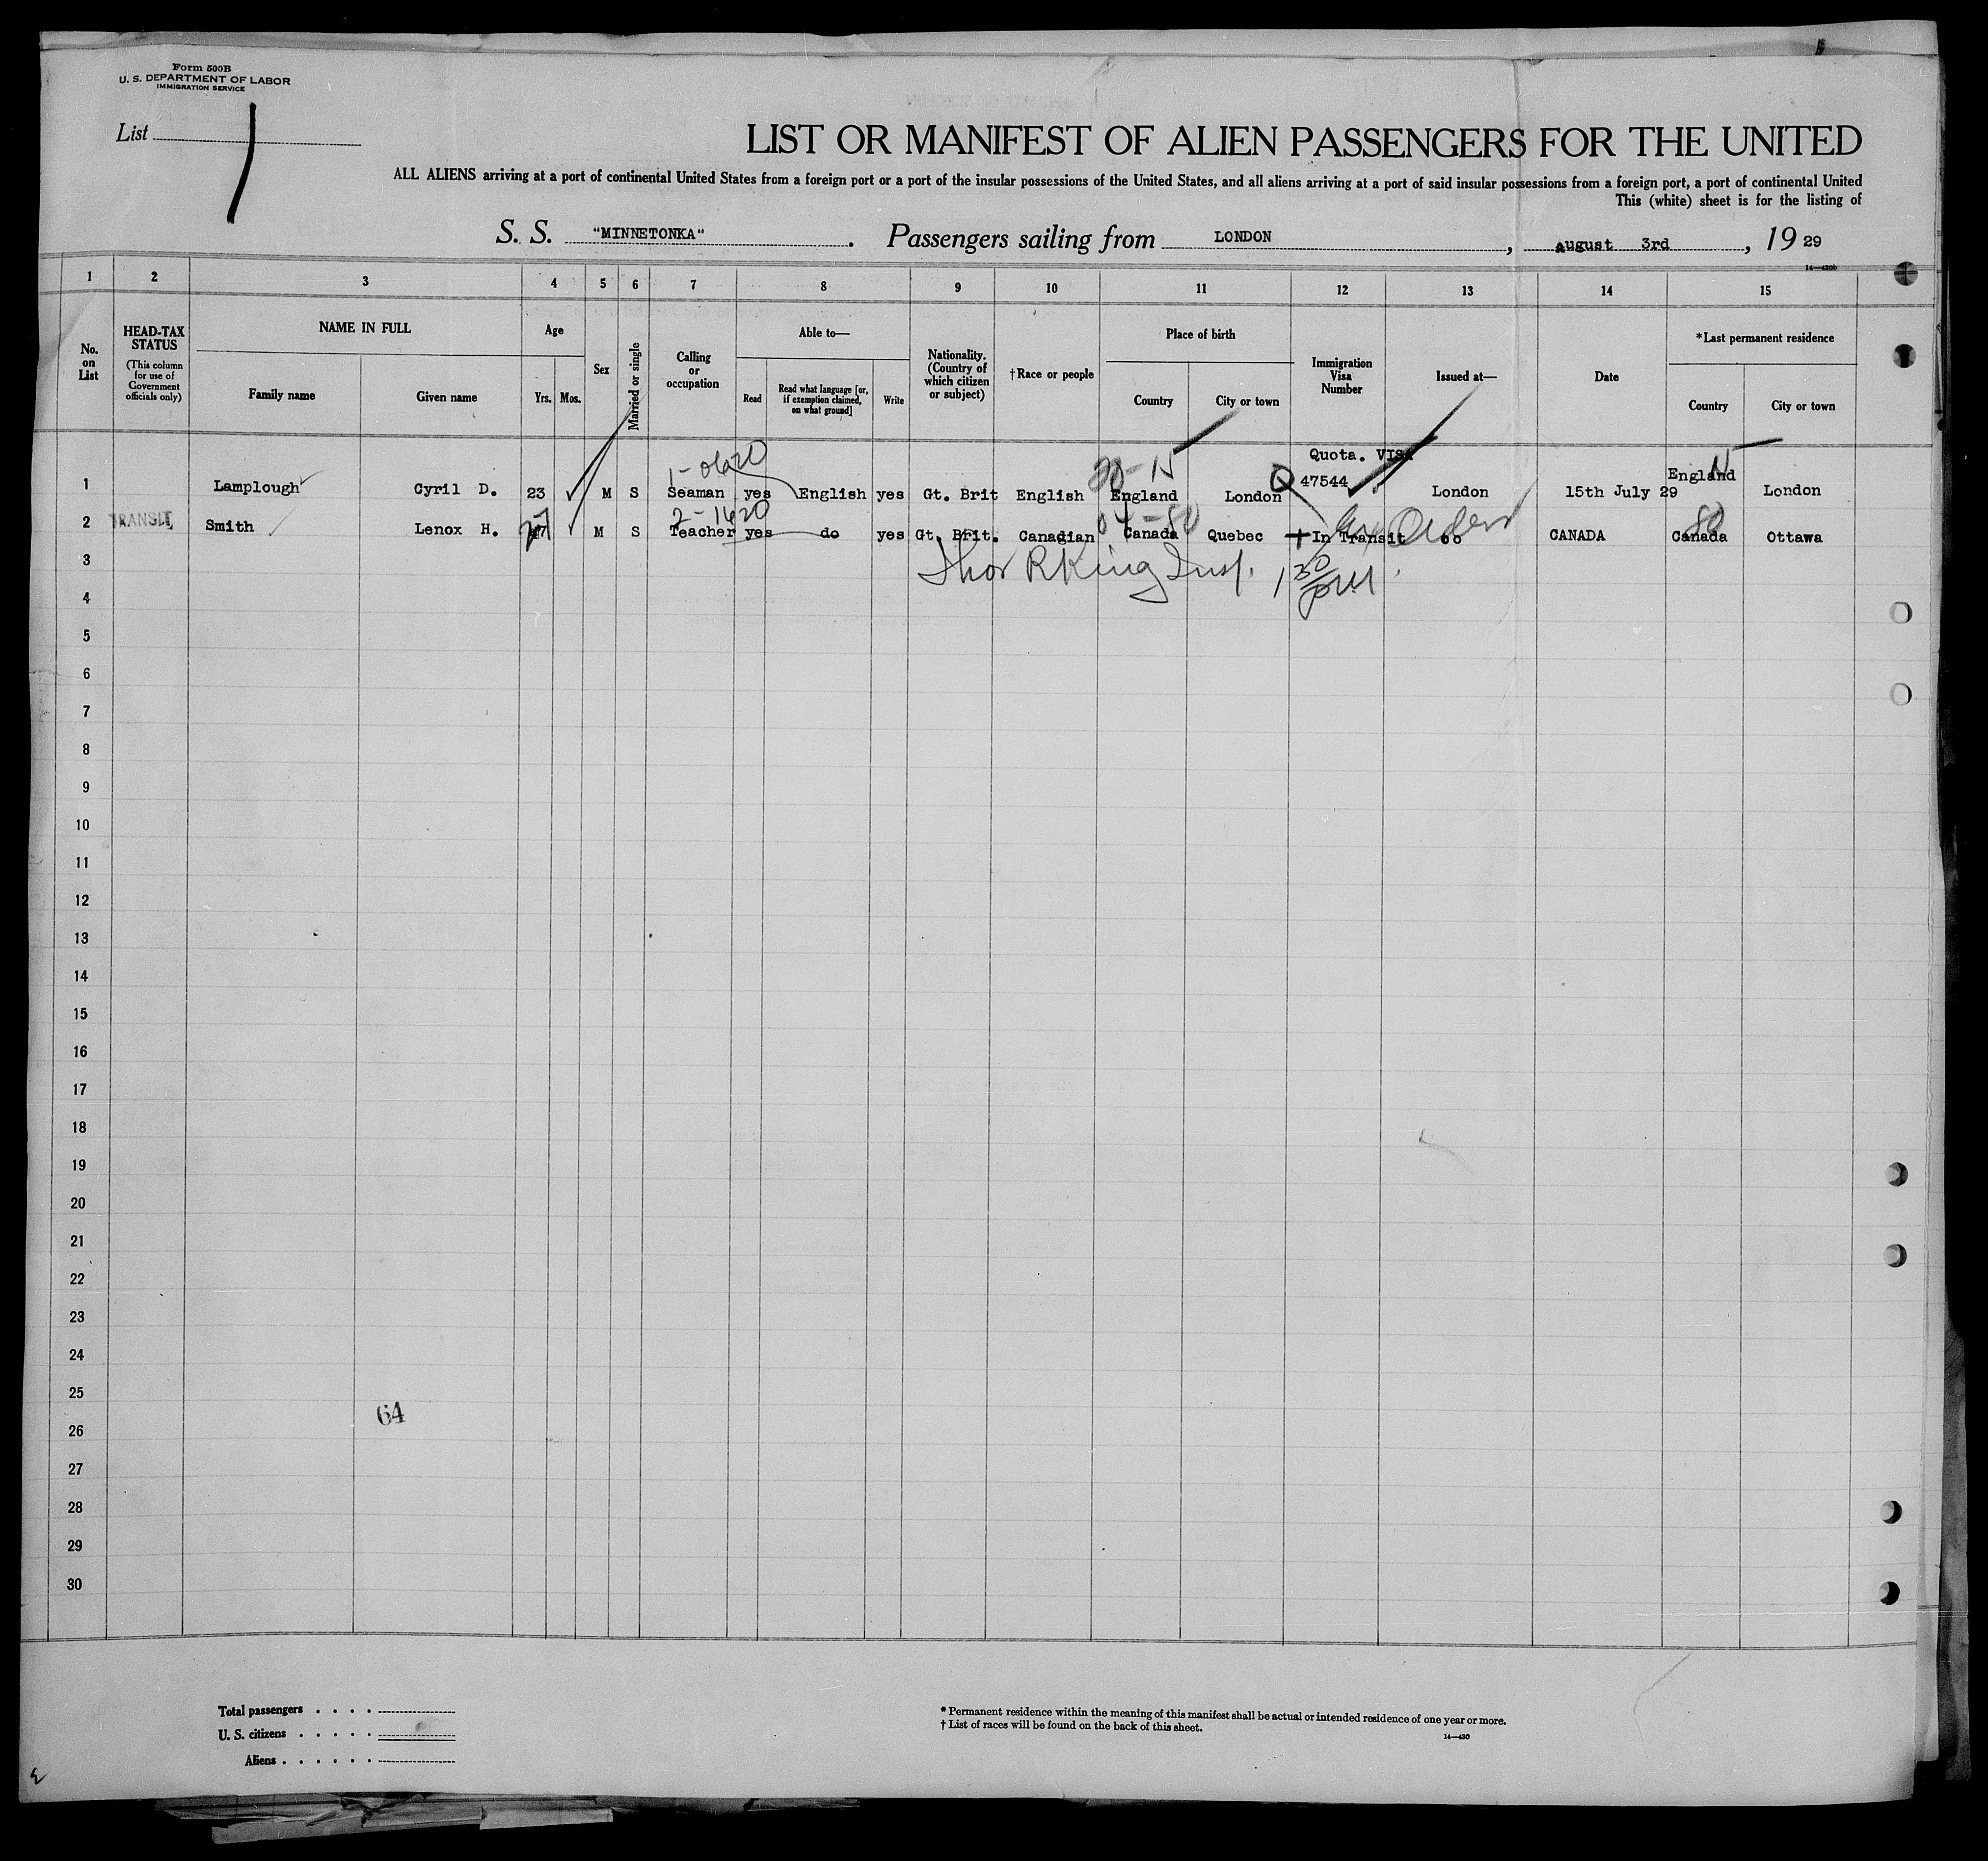 Form 500B
U. S. DEPARTMENT OF LABOR
IMMIGRATION SERVICE
List 1
LIST OR MANIFEST OF ALIEN PASSENGERS FOR THE UNITED
ALL ALIENS arriving at a port of continental United States from a foreign port or a port of the insular possessions of the United States, and all aliens arriving at a port of said insular possessions from a foreign port, a port of continental United
This (white) sheet is for the listing of
S. S. "MINNETONKA". Passengers sailing from LONDON, august 3rd, 19 29
14—430b
1 2 3 4 5 6 7 8 9 10 11 12 13 14 15
No. on List
HEAD-TAX STATUS
(This column for use of Government officials only)
NAME IN FULL
Family name
Given name
Age
Yrs. Mos.
Sex
Married or single
Calling or occupation
Able to—
Read
Read what language [or, if exemption claimed, on what ground]
Write
Nationality. (Country of which citizen or subject)
†Race or people
Place of birth
Country
City or town
Immigration Visa Number
Issued at—
Date
*Last permanent residence
Country
City or town
Quota. VISA
1 Lamplough Cyril D. 23 M S Seaman yes English yes Gt. Brit English England London Q 47544 London 15th July 29 England London
2-1420 04-80 80
2 TRANSIT Smith Lenox H. 27 M S Teacher yes do yes Gt. Brit. Canadian Canada Quebec + In Transit CANADA Canada Ottawa
3 R King Insp. 1 30/PM
4
5
6
7
8
9
10
11
12
13
14
15
16
17
18
19
20
21
22
23
24
25
64
26
27
28
29
30
Total passengers . . . .
U. S. citizens . . . . .
Aliens . . . . . .
* Permanent residence within the meaning of this manifest shall be actual or intended residence of one year or more.
† List of races will be found on the back of this sheet.
14—430